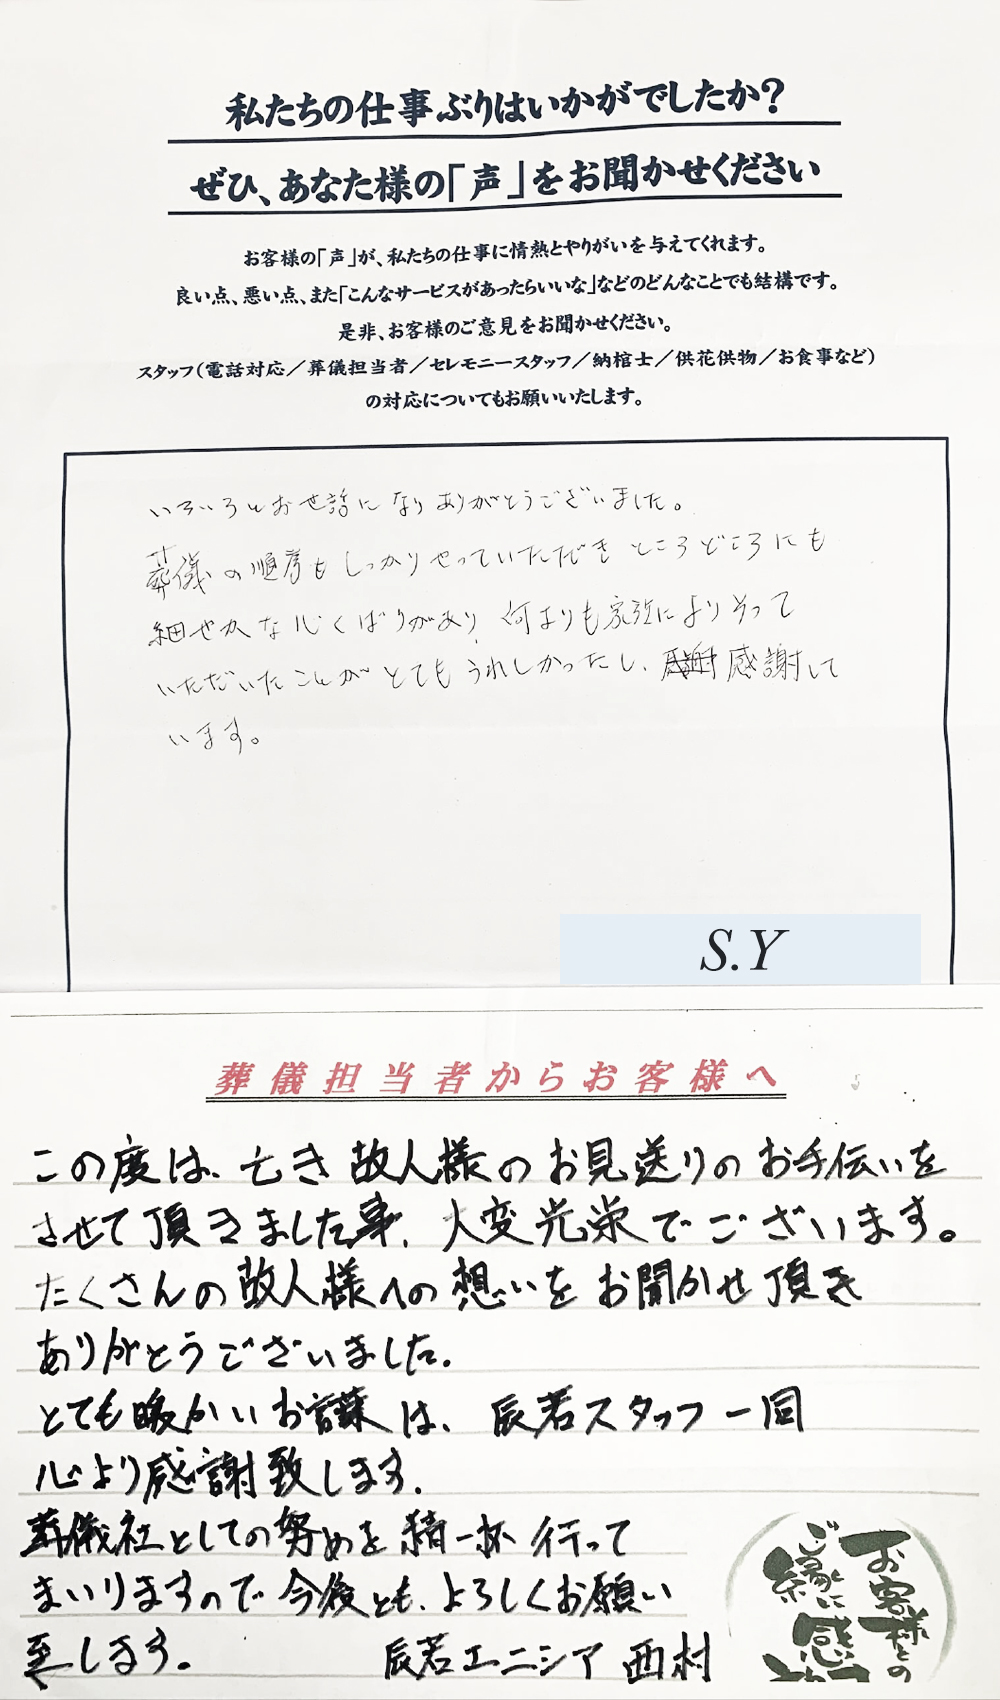 私たちの仕事ぶりはいかがでしたか？
ぜひ、あなた様の「声」をお聞かせください
お客様の「声」が、私たちの仕事に情熱とやりがいを与えてくれます。
良い点、悪い点、また「こんなサービスがあったらいいな」などのどんなことでも結構です。
是非、お客様のご意見をお聞かせください。
スタッフ（電話対応／葬儀担当者／セレモニースタッフ／納棺士／供花供物／お食事など）
の対応についてもお願いいたします。
いろいろとお世話になりありがとうございました。
葬儀の順序もしっかりやっていただき ところどころにも
細やかな心くばりがあり、何よりも家族によりそって
いただいたことがとてもうれしかったし、感謝して
います。
S.Y
葬儀担当者からお客様へ
この度は、亡き故人様のお見送りのお手伝いを
させて頂きました事、大変光栄でございます。
たくさんの故人様への想いをお聞かせ頂き
ありがとうございました。
とても暖かいお言葉は、辰若スタッフ一同
心より感謝致します。
葬儀社としての努めを精一杯行って
まいりますので今後とも、よろしくお願い
至します。 辰若エニシア 西村
お客様との
ご縁に感